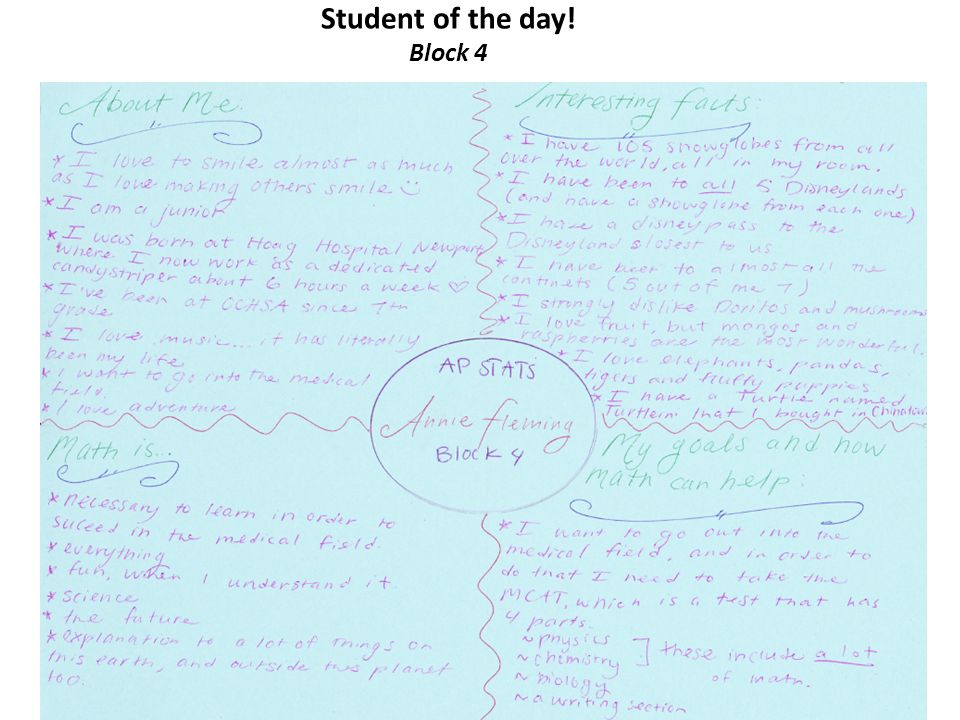 Student of the day!
Block 4
About Me:
* I love to smile almost as much
as I love making others smile
* I am a junior
* I was born at Hoag Hospital Newport,
where I now work as a dedicated
candystriper about 6 hours a week
* I've been at OCHSA since 7th
grade
* I love music... it has literally
been my life
* I want to go into the medical
field.
* I love adventure
Interesting facts:
* I have 105 snowglobes from all
over the world, all in my room.
* I have been to all 5 Disneylands
(and have a snowglobe from each one)
* I have a disney pass to the
Disneyland closest to us
* I have been to almost all the
continets (5 out of the 7)
* I strongly dislike Doritos and mushrooms
* I love fruit, but mangos and
raspberries are the most wonderful.
* I love elephants, pandas,
tigers and fluffy puppies
* I have a Turtle named
Turtleim that I bought in Chinatown
AP STATS
Annie Fleming
Block 4
Math is...
* necessary to learn in order to
suceed in the medical field.
* everything
* fun, when I understand it.
* science
* the future
* explanation to a lot of things on
this earth, and outside this planet
too.
My goals and how
math can help:
* I want to go out into the
medical field, and in order to
do that I need to take the
MCAT, which is a test that has
4 parts.
~ physics
~ chemistry
~ biology
~ a writing section
] these include a lot
of math.